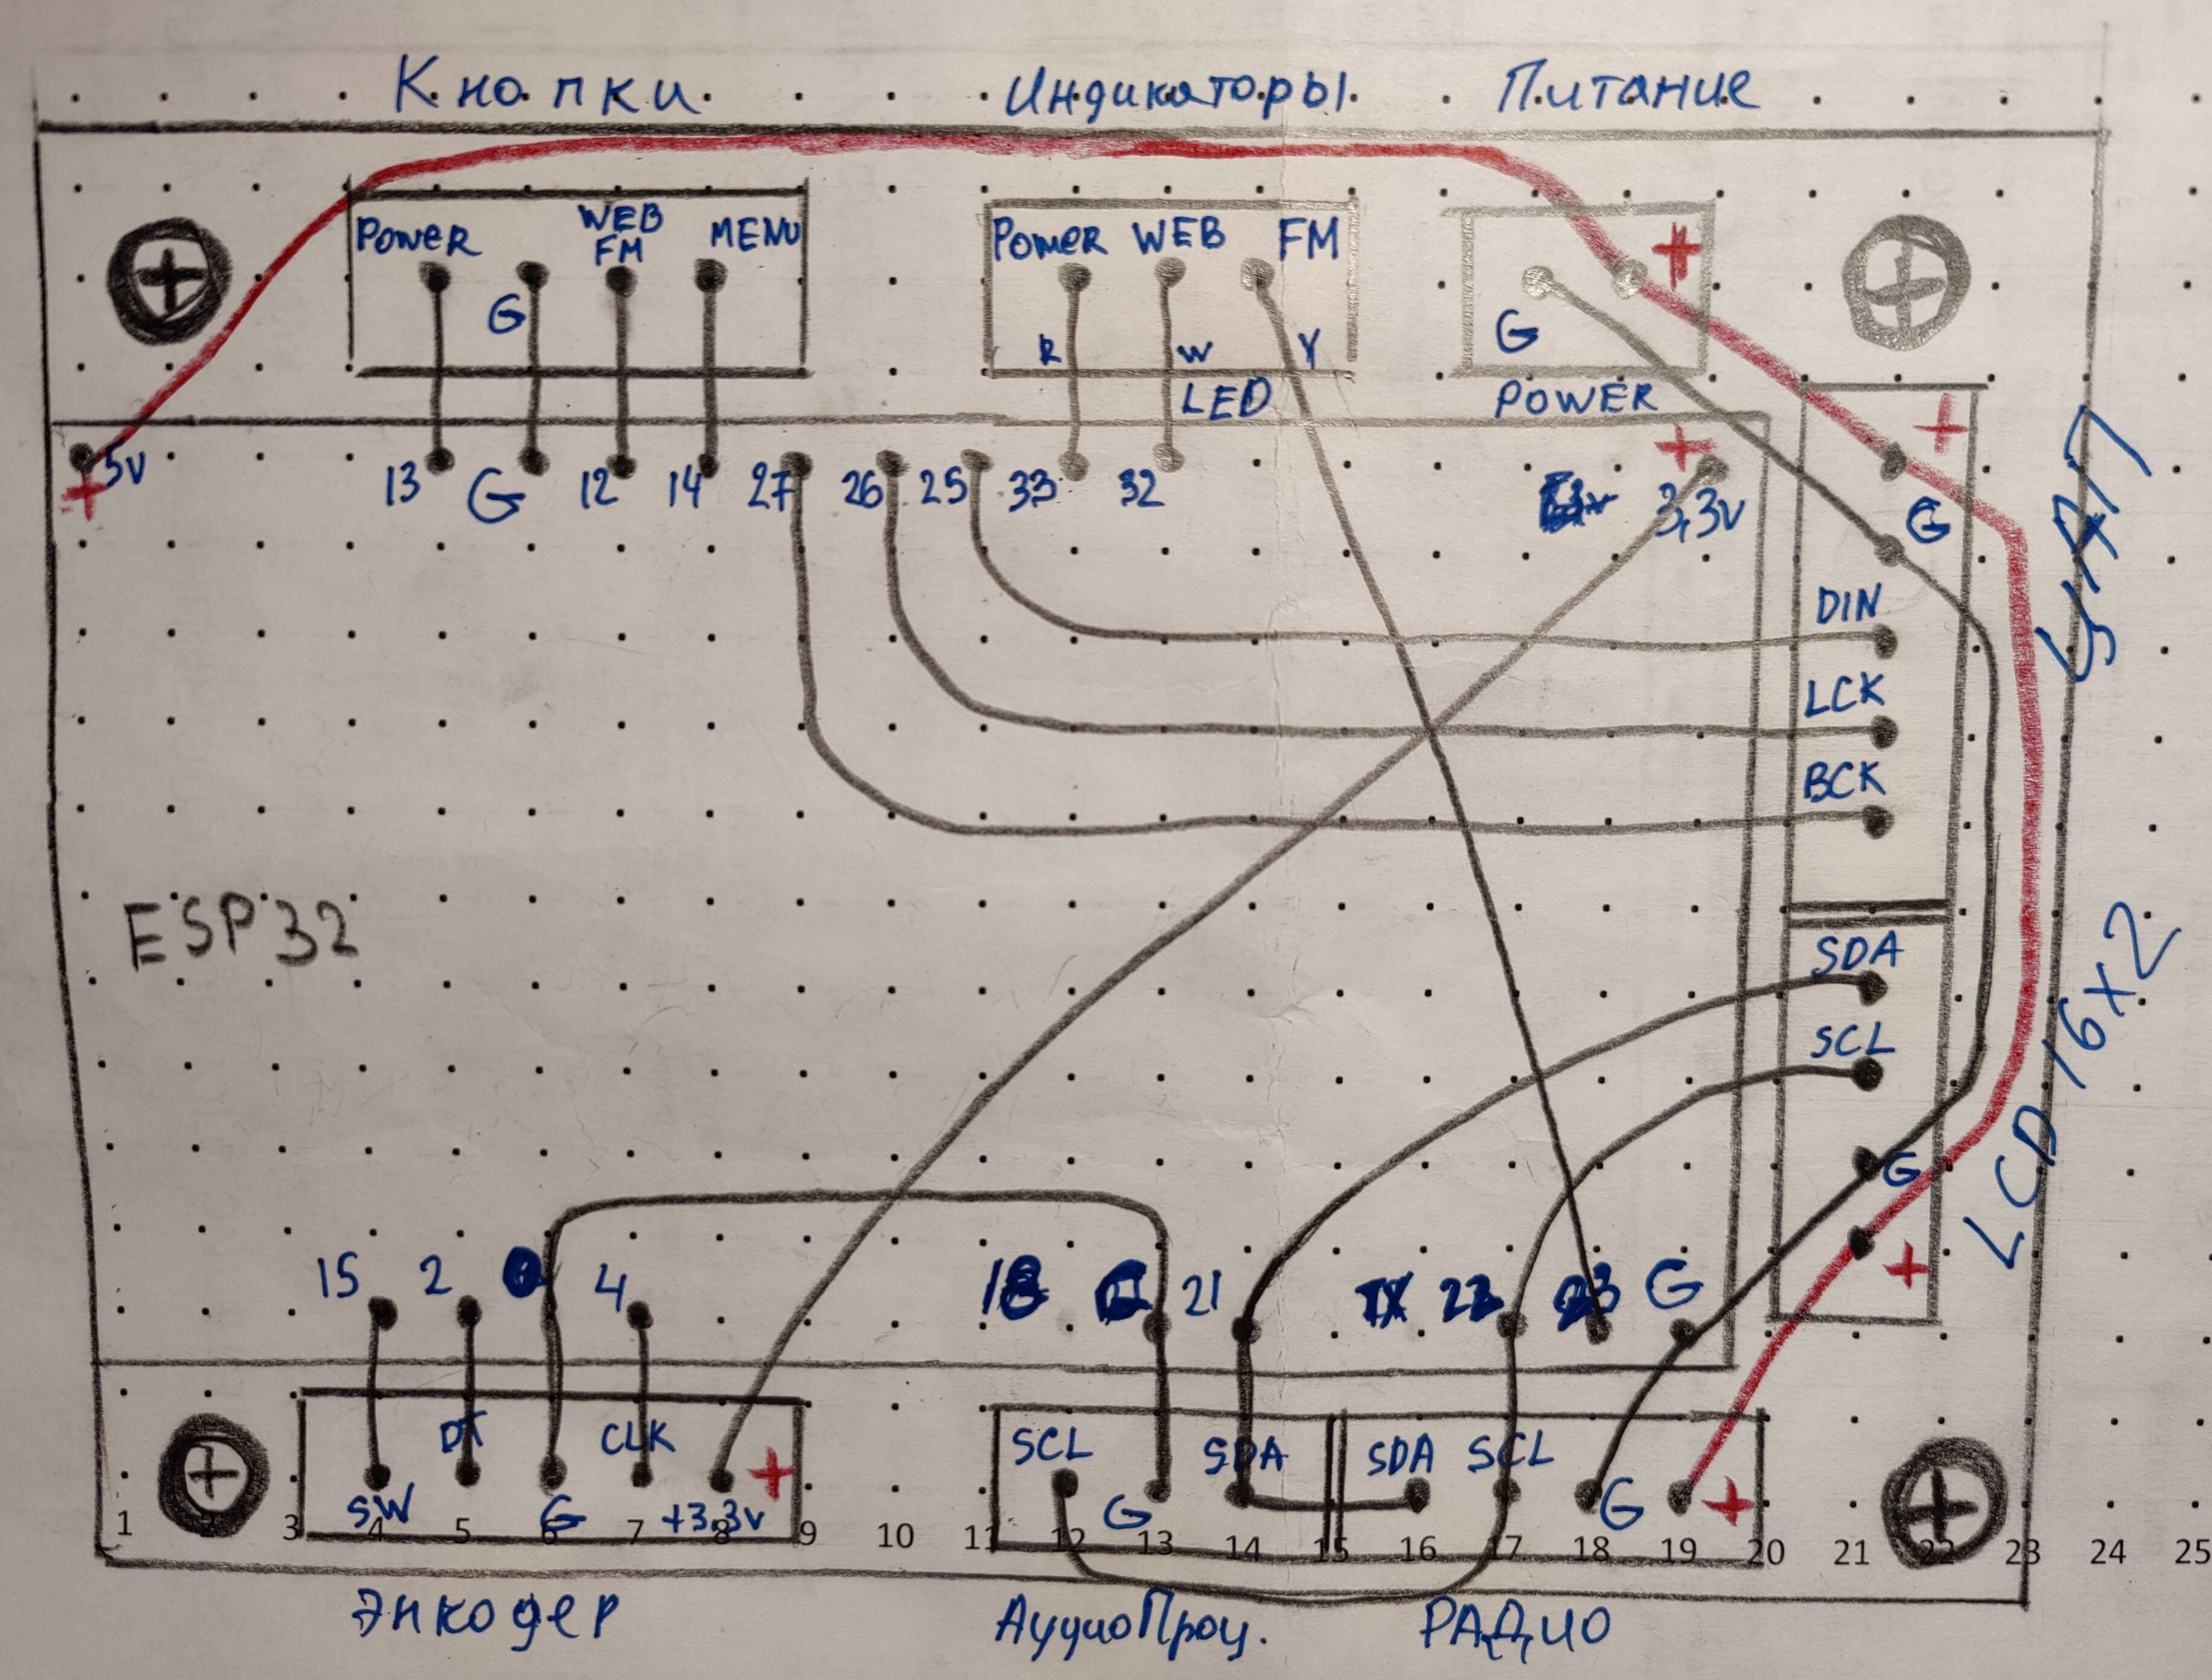 Кнопки Индикаторы Питание
POWER WEB FM MENU
G
POWER WEB FM
R W Y
LED
+
G
POWER
5V
+
13 G 12 14 27 26 25 33 32
+
3,3V
+
G
DIN
LCK
BCK
ЦАП
ESP32
SDA
SCL
G
+
LCD 16X2
15 2 4
21 22 23 G
SW DT G CLK +3,3V +
SCL G SDA
SDA SCL G +
1 2 3 4 5 6 7 8 9 10 11 12 13 14 15 16 17 18 19 20 21 22 23 24 25
Энкодер АудиоПроц. РАДИО